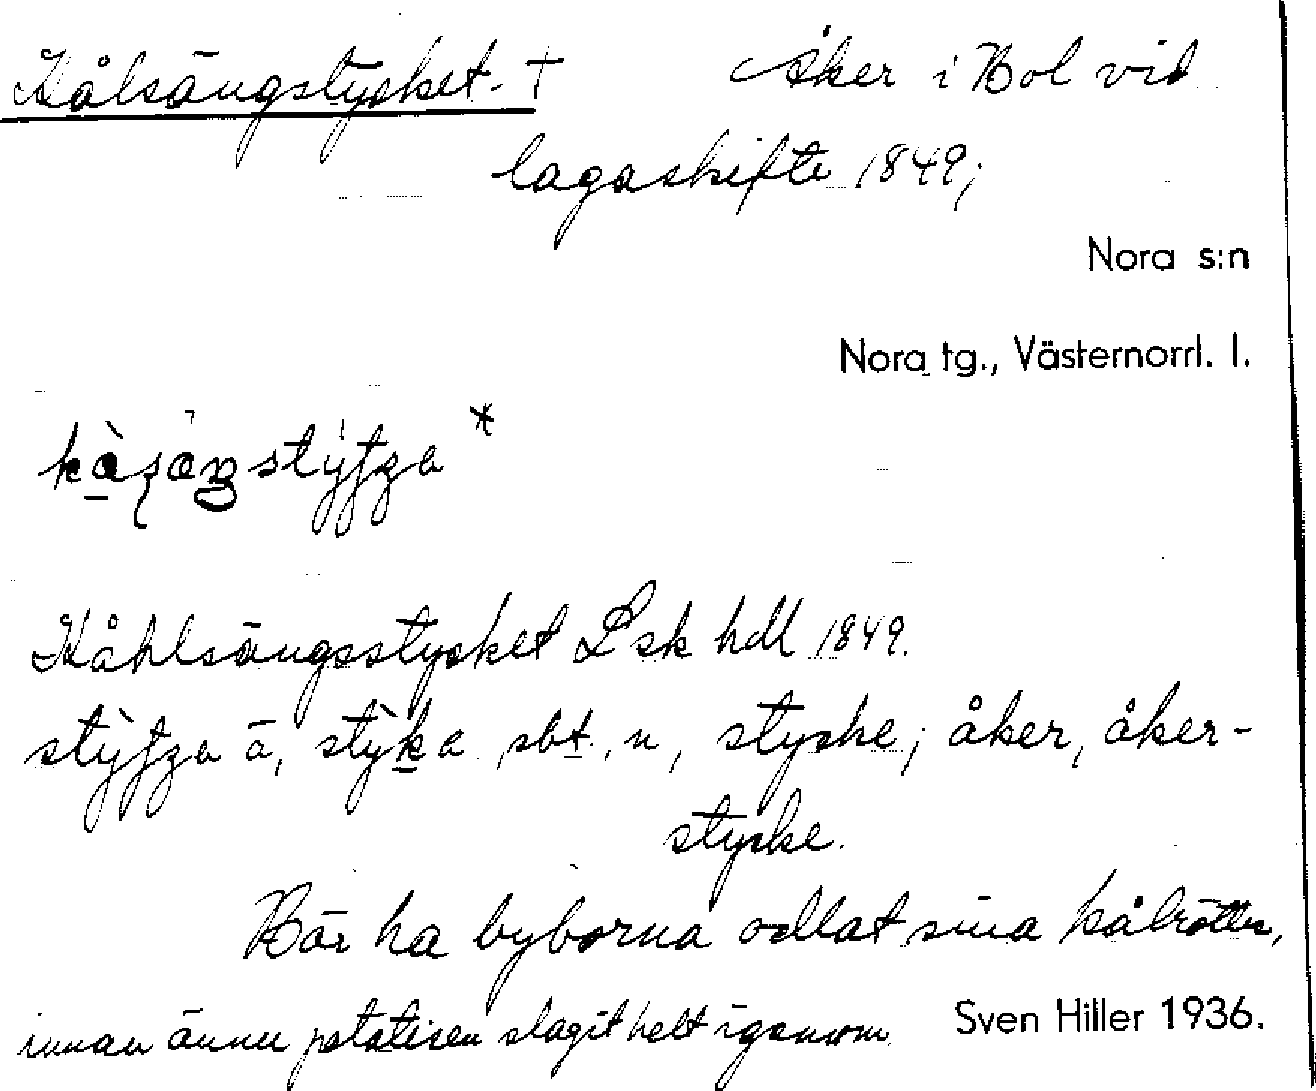 Kålsängstycket † Åker i Bol vid
lagaskifte 1849;
Nora s:n
Nora tg., Västernorrl. l.
Kåhlsängsstycket Lsk hdl 1849.
sbt. n, stycke; åker, åker-
stycke.
Här ha byborna odlat sina kålrötter,
innan ännu potatisen slagit helt igenom
Sven Hiller 1936.